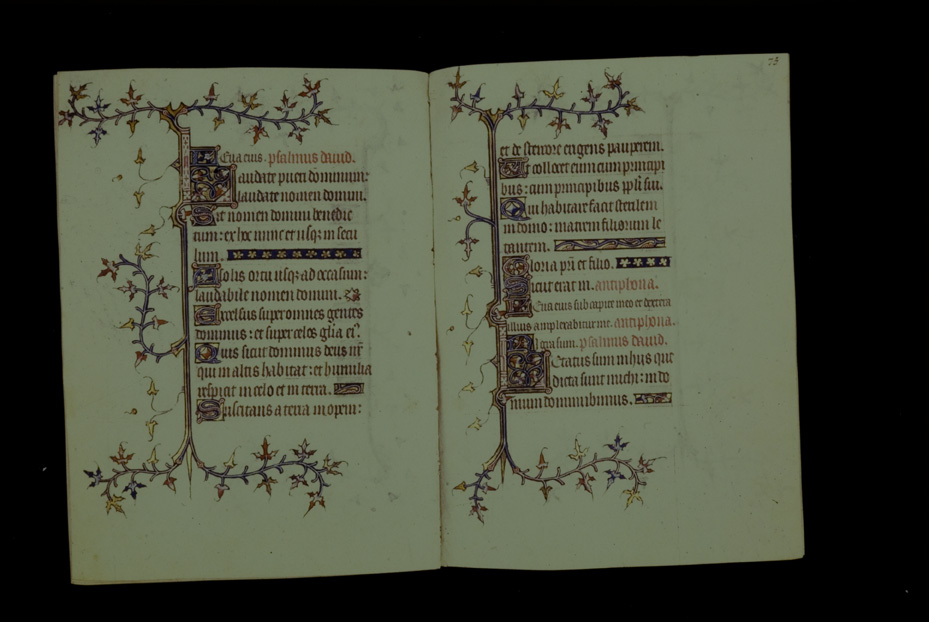 Leua eius. psalmus dauid.
Laudate pueri dominum:
laudate nomen domini.
Sit nomen domini benedic
tum: ex hoc nunc et usq; in secu
lum.
A solis ortu usq; ad occasum:
laudabile nomen domini.
Excelsus super omnes gentes
dominus: et super celos glia ei9.
Quis sicut dominus deus nr
qui in altis habitat: et humilia
respicit in celo et in terra.
Suscitans a terra inopem:
73
et de stercore erigens pauperem.
Ut collocet eum cum principi
bus: cum principibus ppli sui.
Qui habitare facit sterilem
in domo: matrem filiorum le
tantem.
Gloria pri et filio.
Sicut erat in. antiphona.
Leua eius sub capite meo et dextera
illius amplexabitur me. antiphona.
Nigra sum. psalmus dauid.
Letatus sum in hiis que
dicta sunt michi: in do
mum domini ibimus.